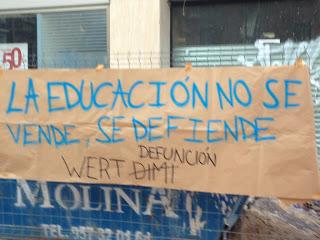 50
LA EDUCACIÓN NO SE
VENDE, SE DEFIENDE
DEFUNCIÓN
WERT DIMI
MOLINA
TEL. 957 32 01 61